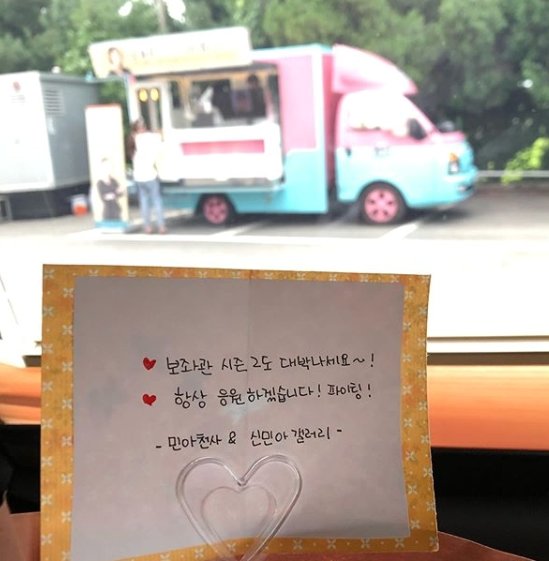 보좌관 시즌 2도 대박나세요~!
항상 응원하겠습니다! 파이팅!
- 민아천사 & 신민아 갤러리 -